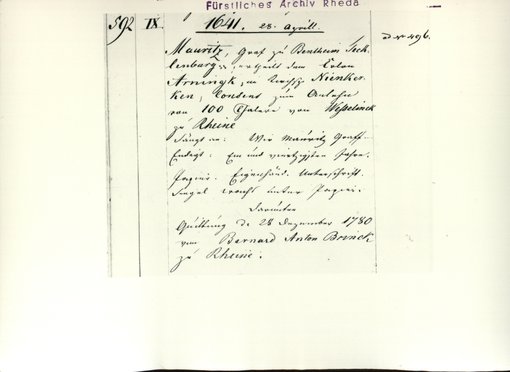 Fürstliches Archiv Rheda
592 IX. 1641. 28. April. D No 496.
Mauritz, Graf zu Bentheim Teck-
lenburg ertheilt dem Colon
Arningk, im Kirchsp. Nienker-
ken, Consens zum Anlehn
von 100 Thalern von Wesselinck
zu Rheine
Fängt an: Wir Mauritz Graff.
Endigt: Ein und viertzigsten Jahre.
Papier. Eigenhänd. Unterschrift.
Siegel wachs unter Papier.
Darunter
Quittung de 28 Dezember 1780
von Bernard Anton Brinck
zu Rheine.